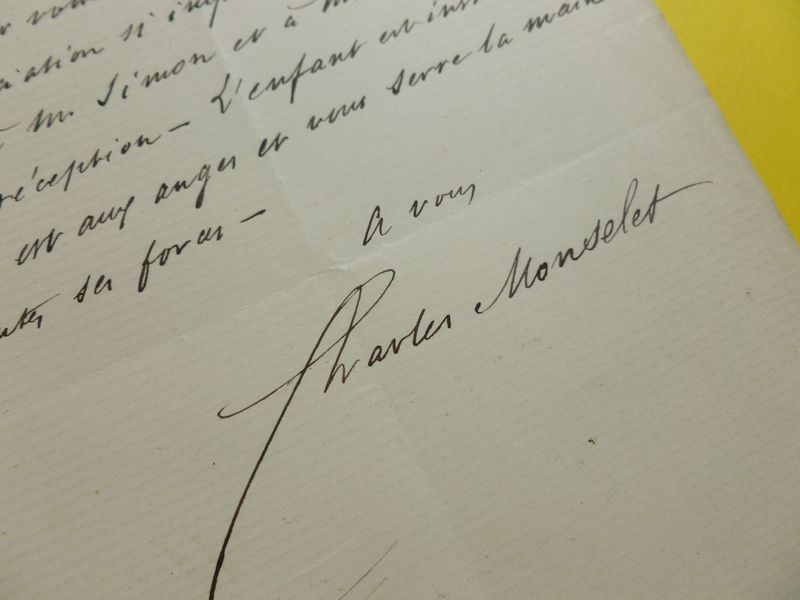 si
M. Simon et à
réception – L'enfant est
est aux anges et vous serre la main
ses forces –
à vous
Charles Monselet